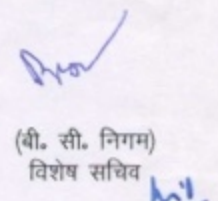 (बी॰ सी॰ निगम)
विशेष सचिव